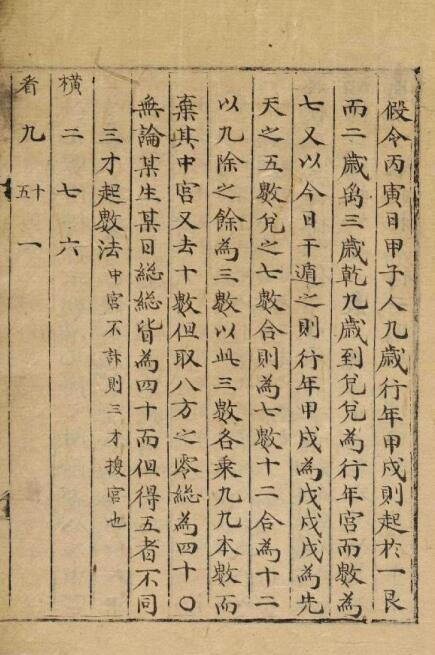 假令丙寅日甲子人九歲行年甲戌則起於一艮
而二歲离三歲乾九歲到兌兌為行年宮而數為
七又以今日干遁之則行年甲戌為戊戌戊為先
天之五數兌之七數合則為七數十二合為十二
以九除之餘為三數以此三數各乘九九本數而
棄其中宮又去十數但取八方之零総為四十〇
無論某生某日総総皆為四十而但得五者不同
三才起數法中宮不計則三才搜宮也
橫二七六
看九五十一